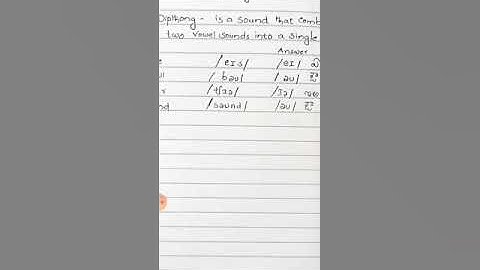 Dipthong - is a sound that comb
two vowel sounds into a single
Answer
e /eɪs/ /eɪ/
ul /bəu/ /əu/
r /tʃɪə/ /ɪə/
nd /səund/ /əu/